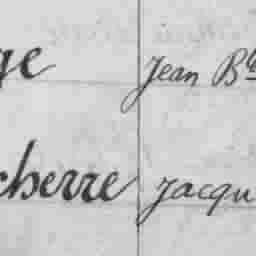 ge Jean Bte
cherre Jacqu